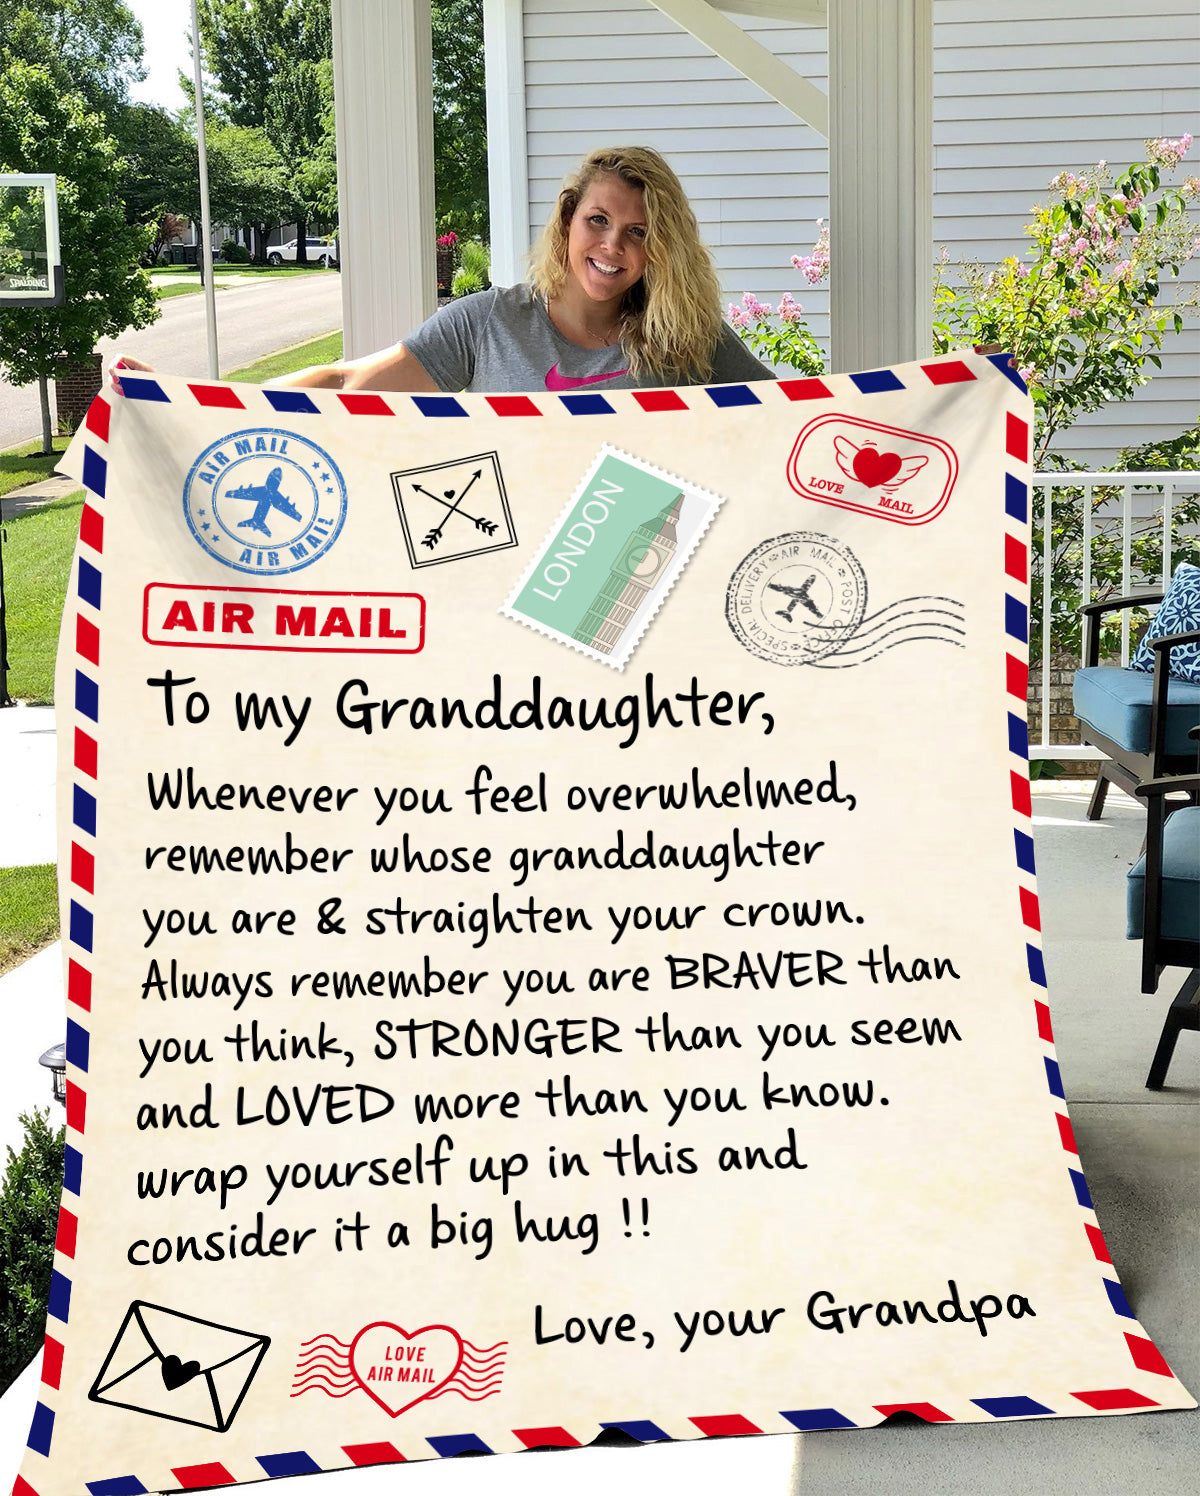 SPALDING
AIR MAIL
AIR MAIL
LONDON
LOVE MAIL
SPECIAL DELIVERY AIR MAIL POST OFFICE
AIR MAIL
To my Granddaughter,
Whenever you feel overwhelmed,
remember whose granddaughter
you are & straighten your crown.
Always remember you are BRAVER than
you think, STRONGER than you seem
and LOVED more than you know.
wrap yourself up in this and
consider it a big hug !!
Love, your Grandpa
LOVE
AIR MAIL